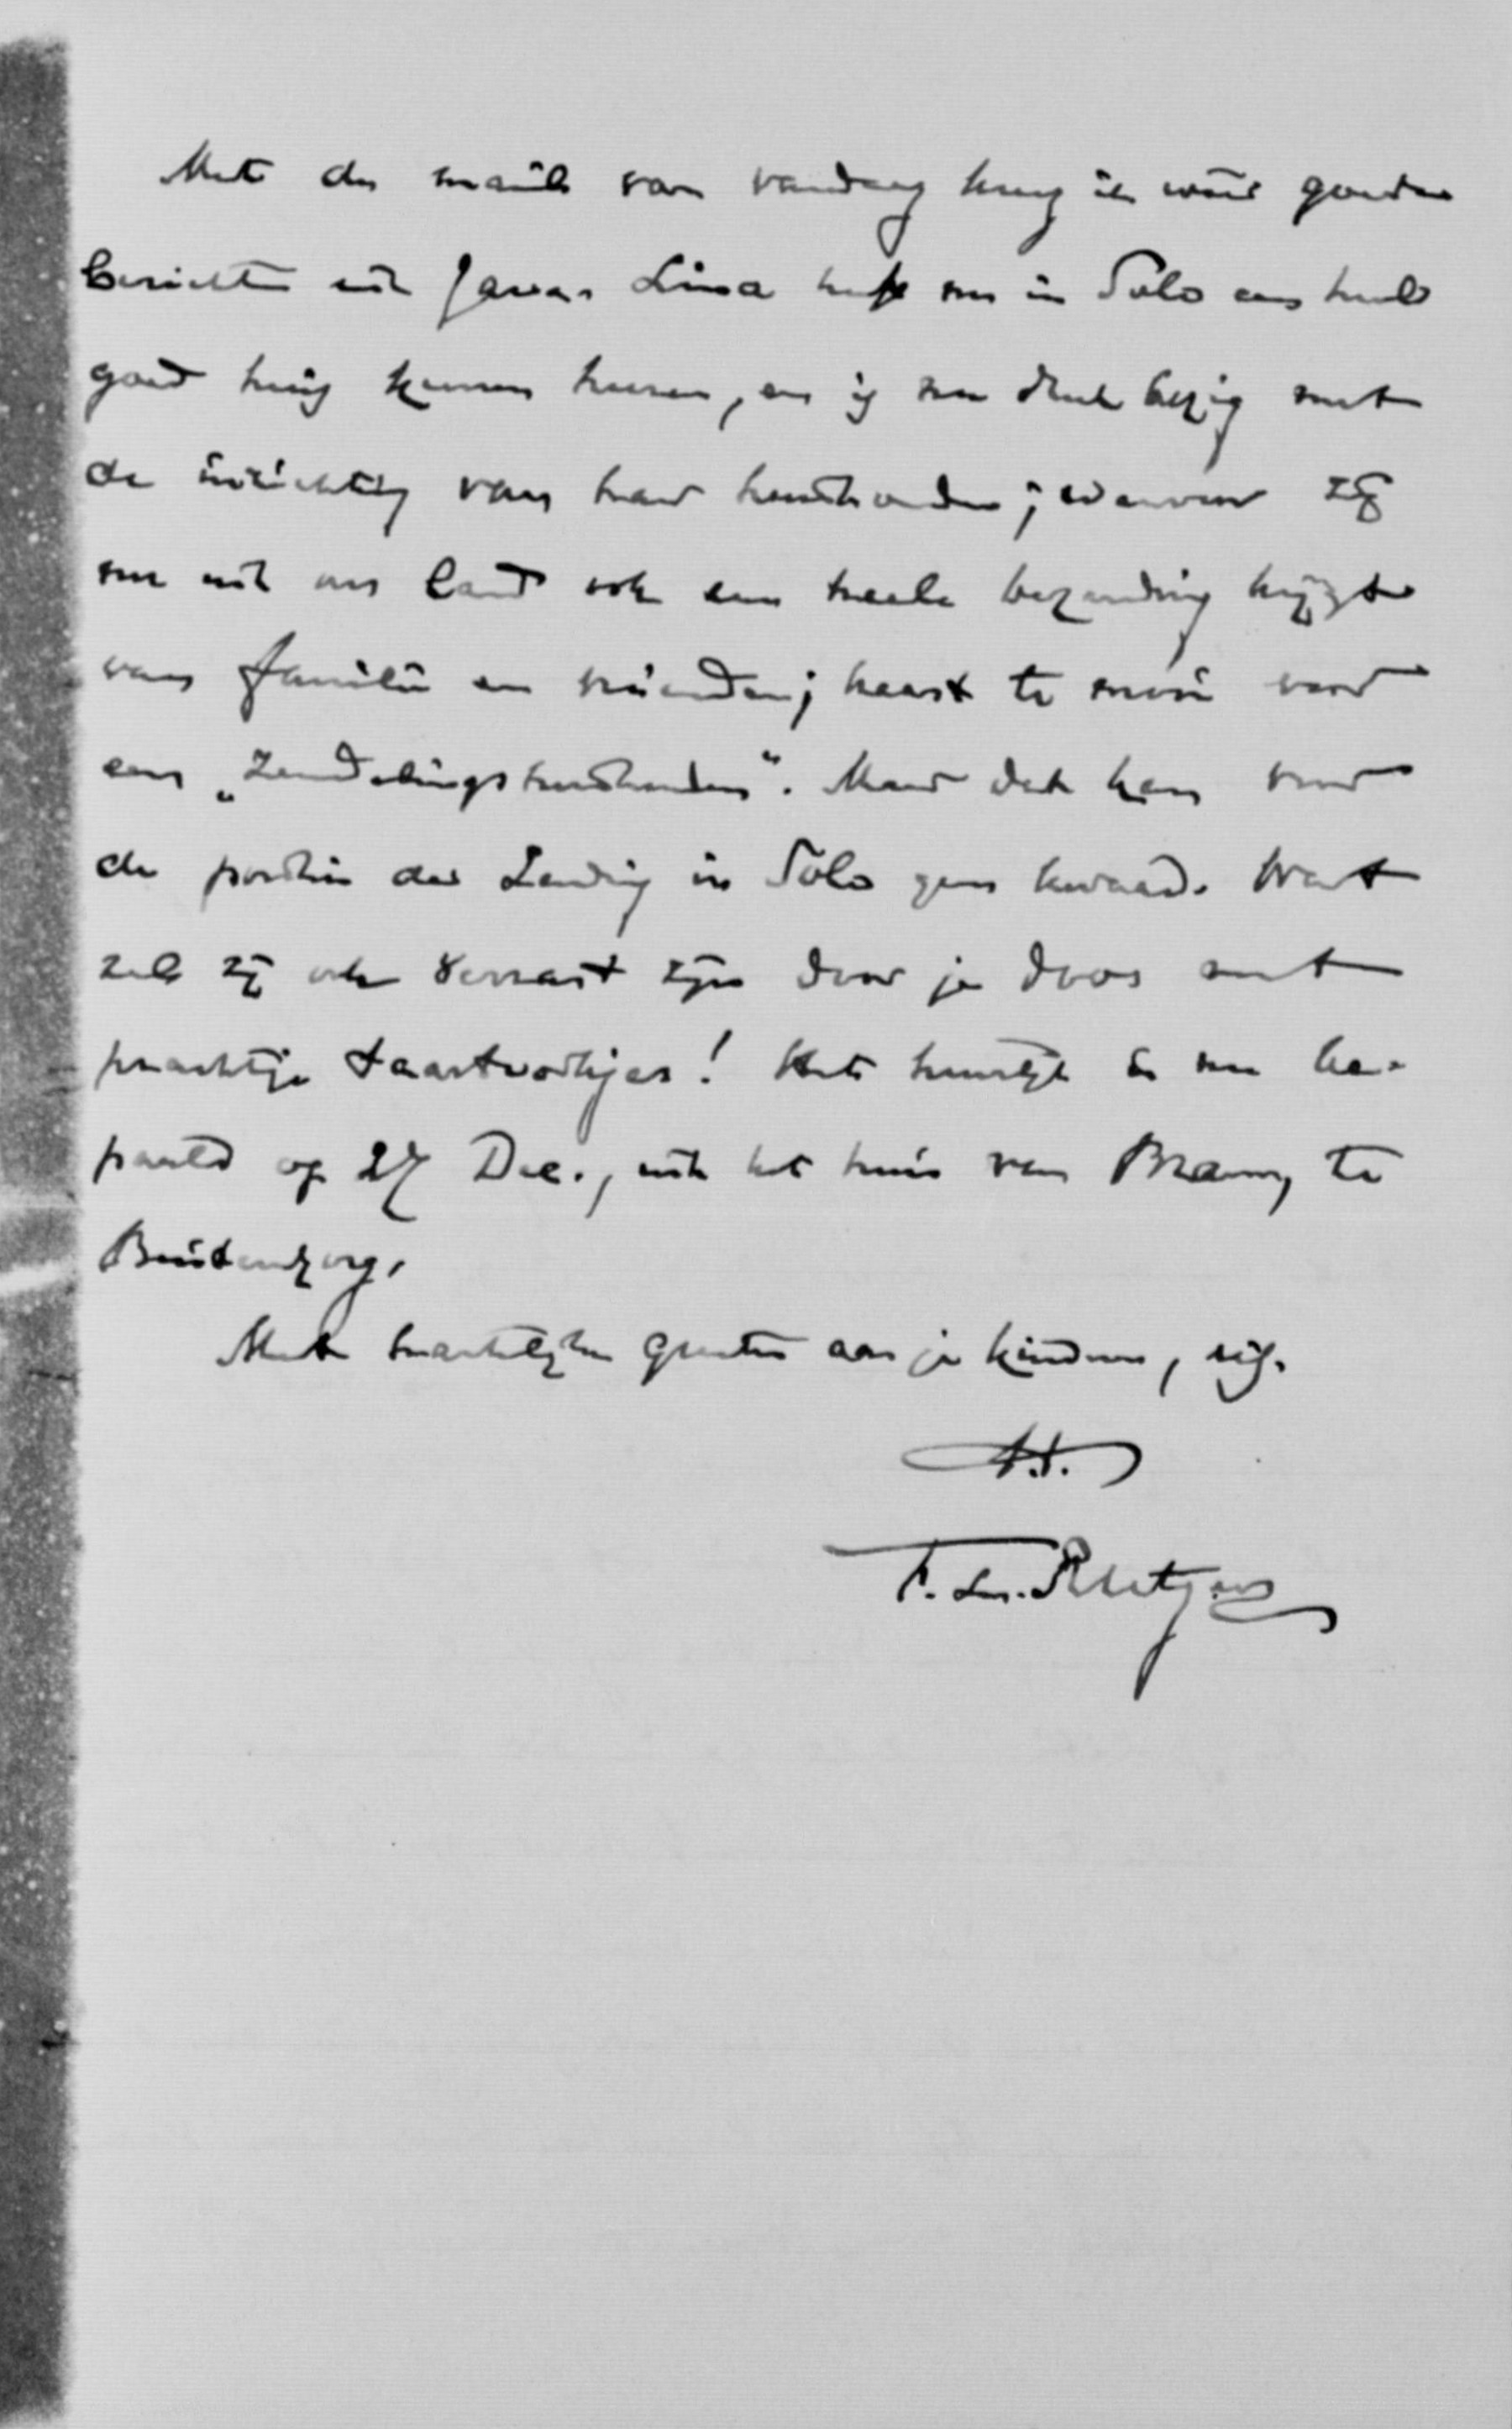 Met de mail van vandaag kreeg ik weer goede
berichten uit Java. Lina heeft nu in Solo een heel
goed huis kunnen huren, en is nu druk bezig met
de inrichting van haar huishouden; waarvoor zij
nu uit ons land ook een heele bezending krijgt
van familie en vrienden; haast te mooi voor
een „zendelingshuishouden". Maar dat kan voor
de positie der Zending in Solo geen kwaad. Wat
zal zij ook verrast zijn door je doos met
prachtige taartvorkjes! Het huwelijk is nu be-
paald op 27 Dec., uit het huis van Bram, te
Buitenzorg.
Met hartelijke groeten aan je kinderen, stijf.
t.t.
F. L. Rutgers